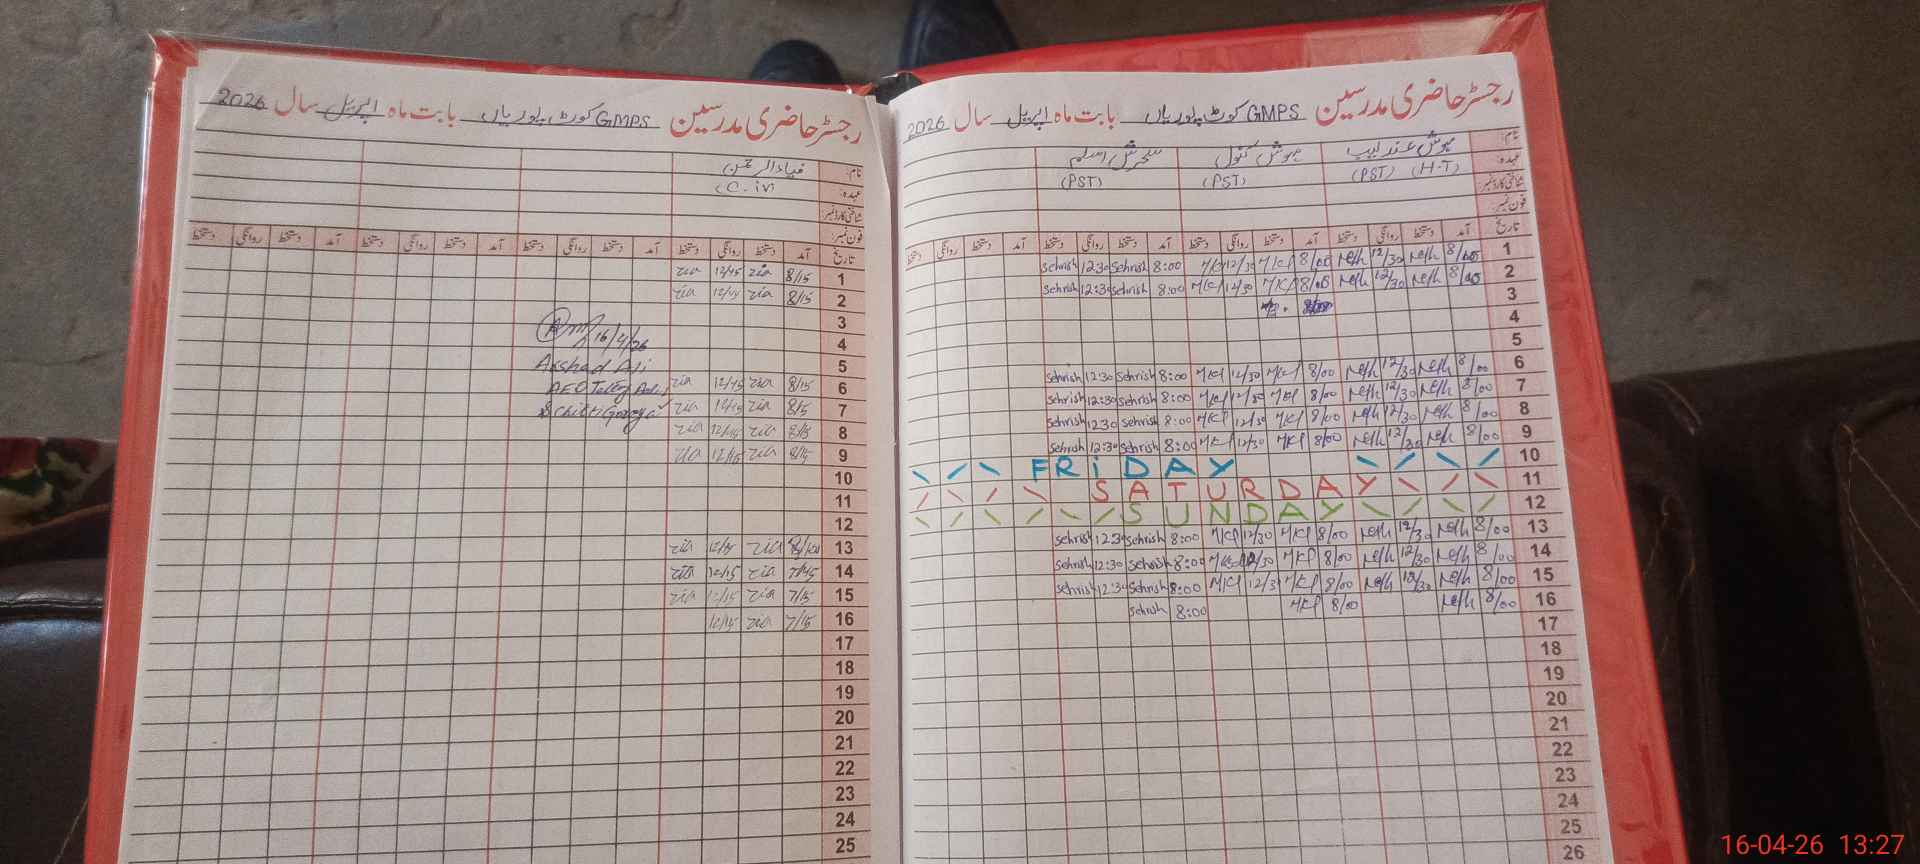 رجسٹر حاضری مدرسین GMPS کوٹ پلوریاں بابت ماہ اپریل سال 2026
نام: مہوش عندلیب مہوش کنول سحرش اسلم
عہدہ: (H.T) (PST) (PST) (PST)
شناختی کارڈ نمبر:
فون نمبر:
تاریخ آمد دستخط روانگی دستخط آمد دستخط روانگی دستخط آمد دستخط روانگی دستخط آمد دستخط روانگی دستخط
1 8/00 12/30 8/00 12/30 8:00 Sehrish 12:30 Sehrish
2 12/30 8/00 12/30 8:00 Sehrish 12:30 Sehrish
3
4
5
6 8/00 12/30 8/00 12/30 8:00 Sehrish 12:30 Sehrish
7 8/00 12/30 8/00 12/30 8:00 Sehrish 12:30 Sehrish
8 8/00 12/30 8/00 12/30 8:00 Sehrish 12:30 Sehrish
9 8/00 12/30 8/00 12/30 8:00 Sehrish 12:30 Sehrish
10 FRIDAY
11 SATURDAY
12 SUNDAY
13 8/00 12/30 8/00 12/30 8:00 Sehrish 12:30 Sehrish
14 8/00 12/30 8/00 12/30 8:00 Sehrish 12:30 Sehrish
15 8/00 12/30 8/00 12/30 8:00 Sehrish 12:30 Sehrish
16 8/00 8/00 8:00 Sehrish
17
18
19
20
21
22
23
24
25
26
رجسٹر حاضری مدرسین GMPS کوٹ پلوریاں بابت ماہ اپریل سال 2026
نام: ضیاء الرحمن
عہدہ: (C.iv)
شناختی کارڈ نمبر:
فون نمبر:
تاریخ آمد دستخط روانگی دستخط آمد دستخط روانگی دستخط آمد دستخط روانگی دستخط آمد دستخط روانگی دستخط
1 8/15 zia 12/45 zia
2 8/15 zia zia
3
4 16/4/26
5 Arshad Ali
6 8/15 zia 12/45 zia AEO
7 8/15 zia 12/45 zia
8 8/15 zia 12/45 zia
9 8/15 zia 12/45 zia
10
11
12
13 zia zia
14 7/45 zia 12/15 zia
15 7/15 zia 12/15 zia
16 7/15 zia 12/15
17
18
19
20
21
22
23
24
25
16-04-26 13:27